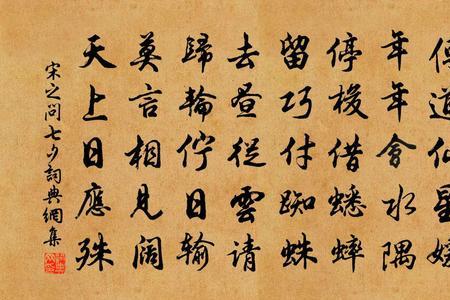 傳道仙星媛
年年會水隅
停梭借蟋蟀
留巧付踟蛛
去晝從雲請
歸輪佇日輸
莫言相見闊
天上日應殊
宋之問七夕詞典網集